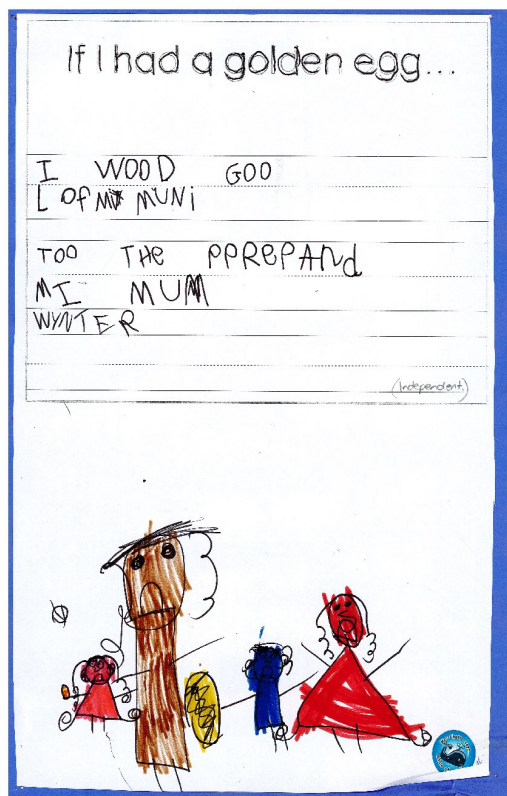 If I had a golden egg...
I WOOD GOO
L OF MY MUNi
TOO THE PPREPANd
MI MUM
WYNTER
(Independent)